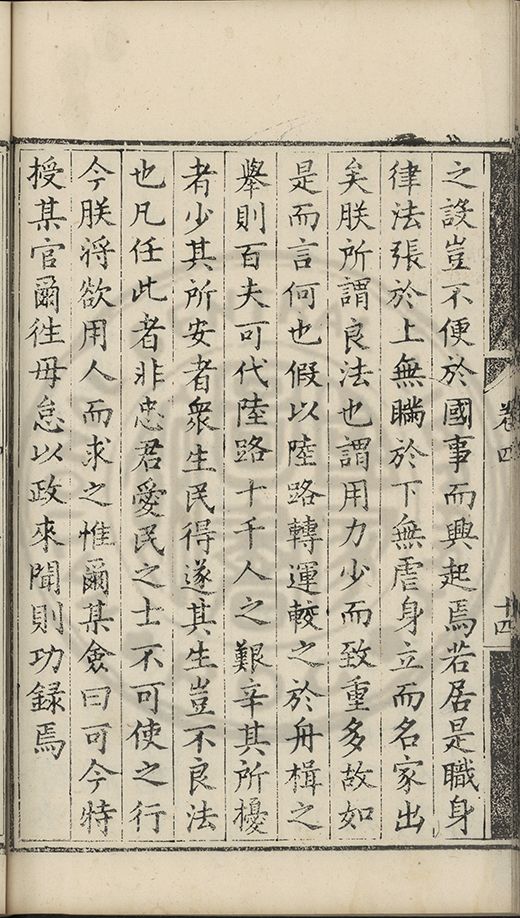 之設豈不便於國事而興起焉若居是職身
律法張於上無瞞於下無虐身立而名家出
矣朕所謂良法也謂用力少而致重多故如
是而言何也假以陸路轉運較之於舟楫之
舉則百夫可代陸路十千人之艱辛其所擾
者少其所安者衆生民得遂其生豈不良法
也凡任此者非忠君愛民之士不可使之行
今朕將欲用人而求之惟爾某僉曰可今特
授某官爾徃毋怠以政來聞則功錄焉
卷四
十四